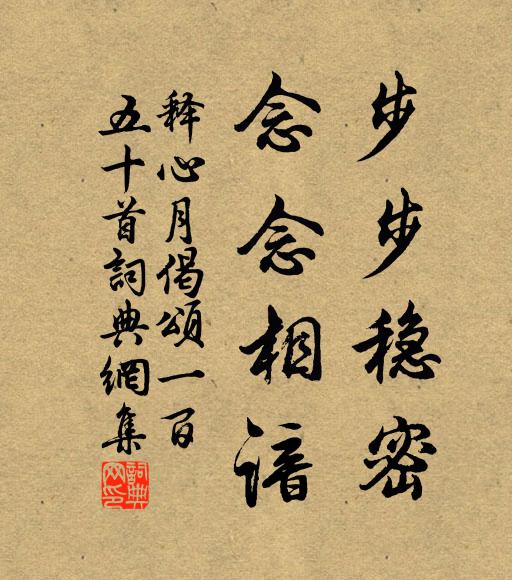 步步稳密
念念相谙
释心月偈颂一百
五十首詞典網集
詞典
网印